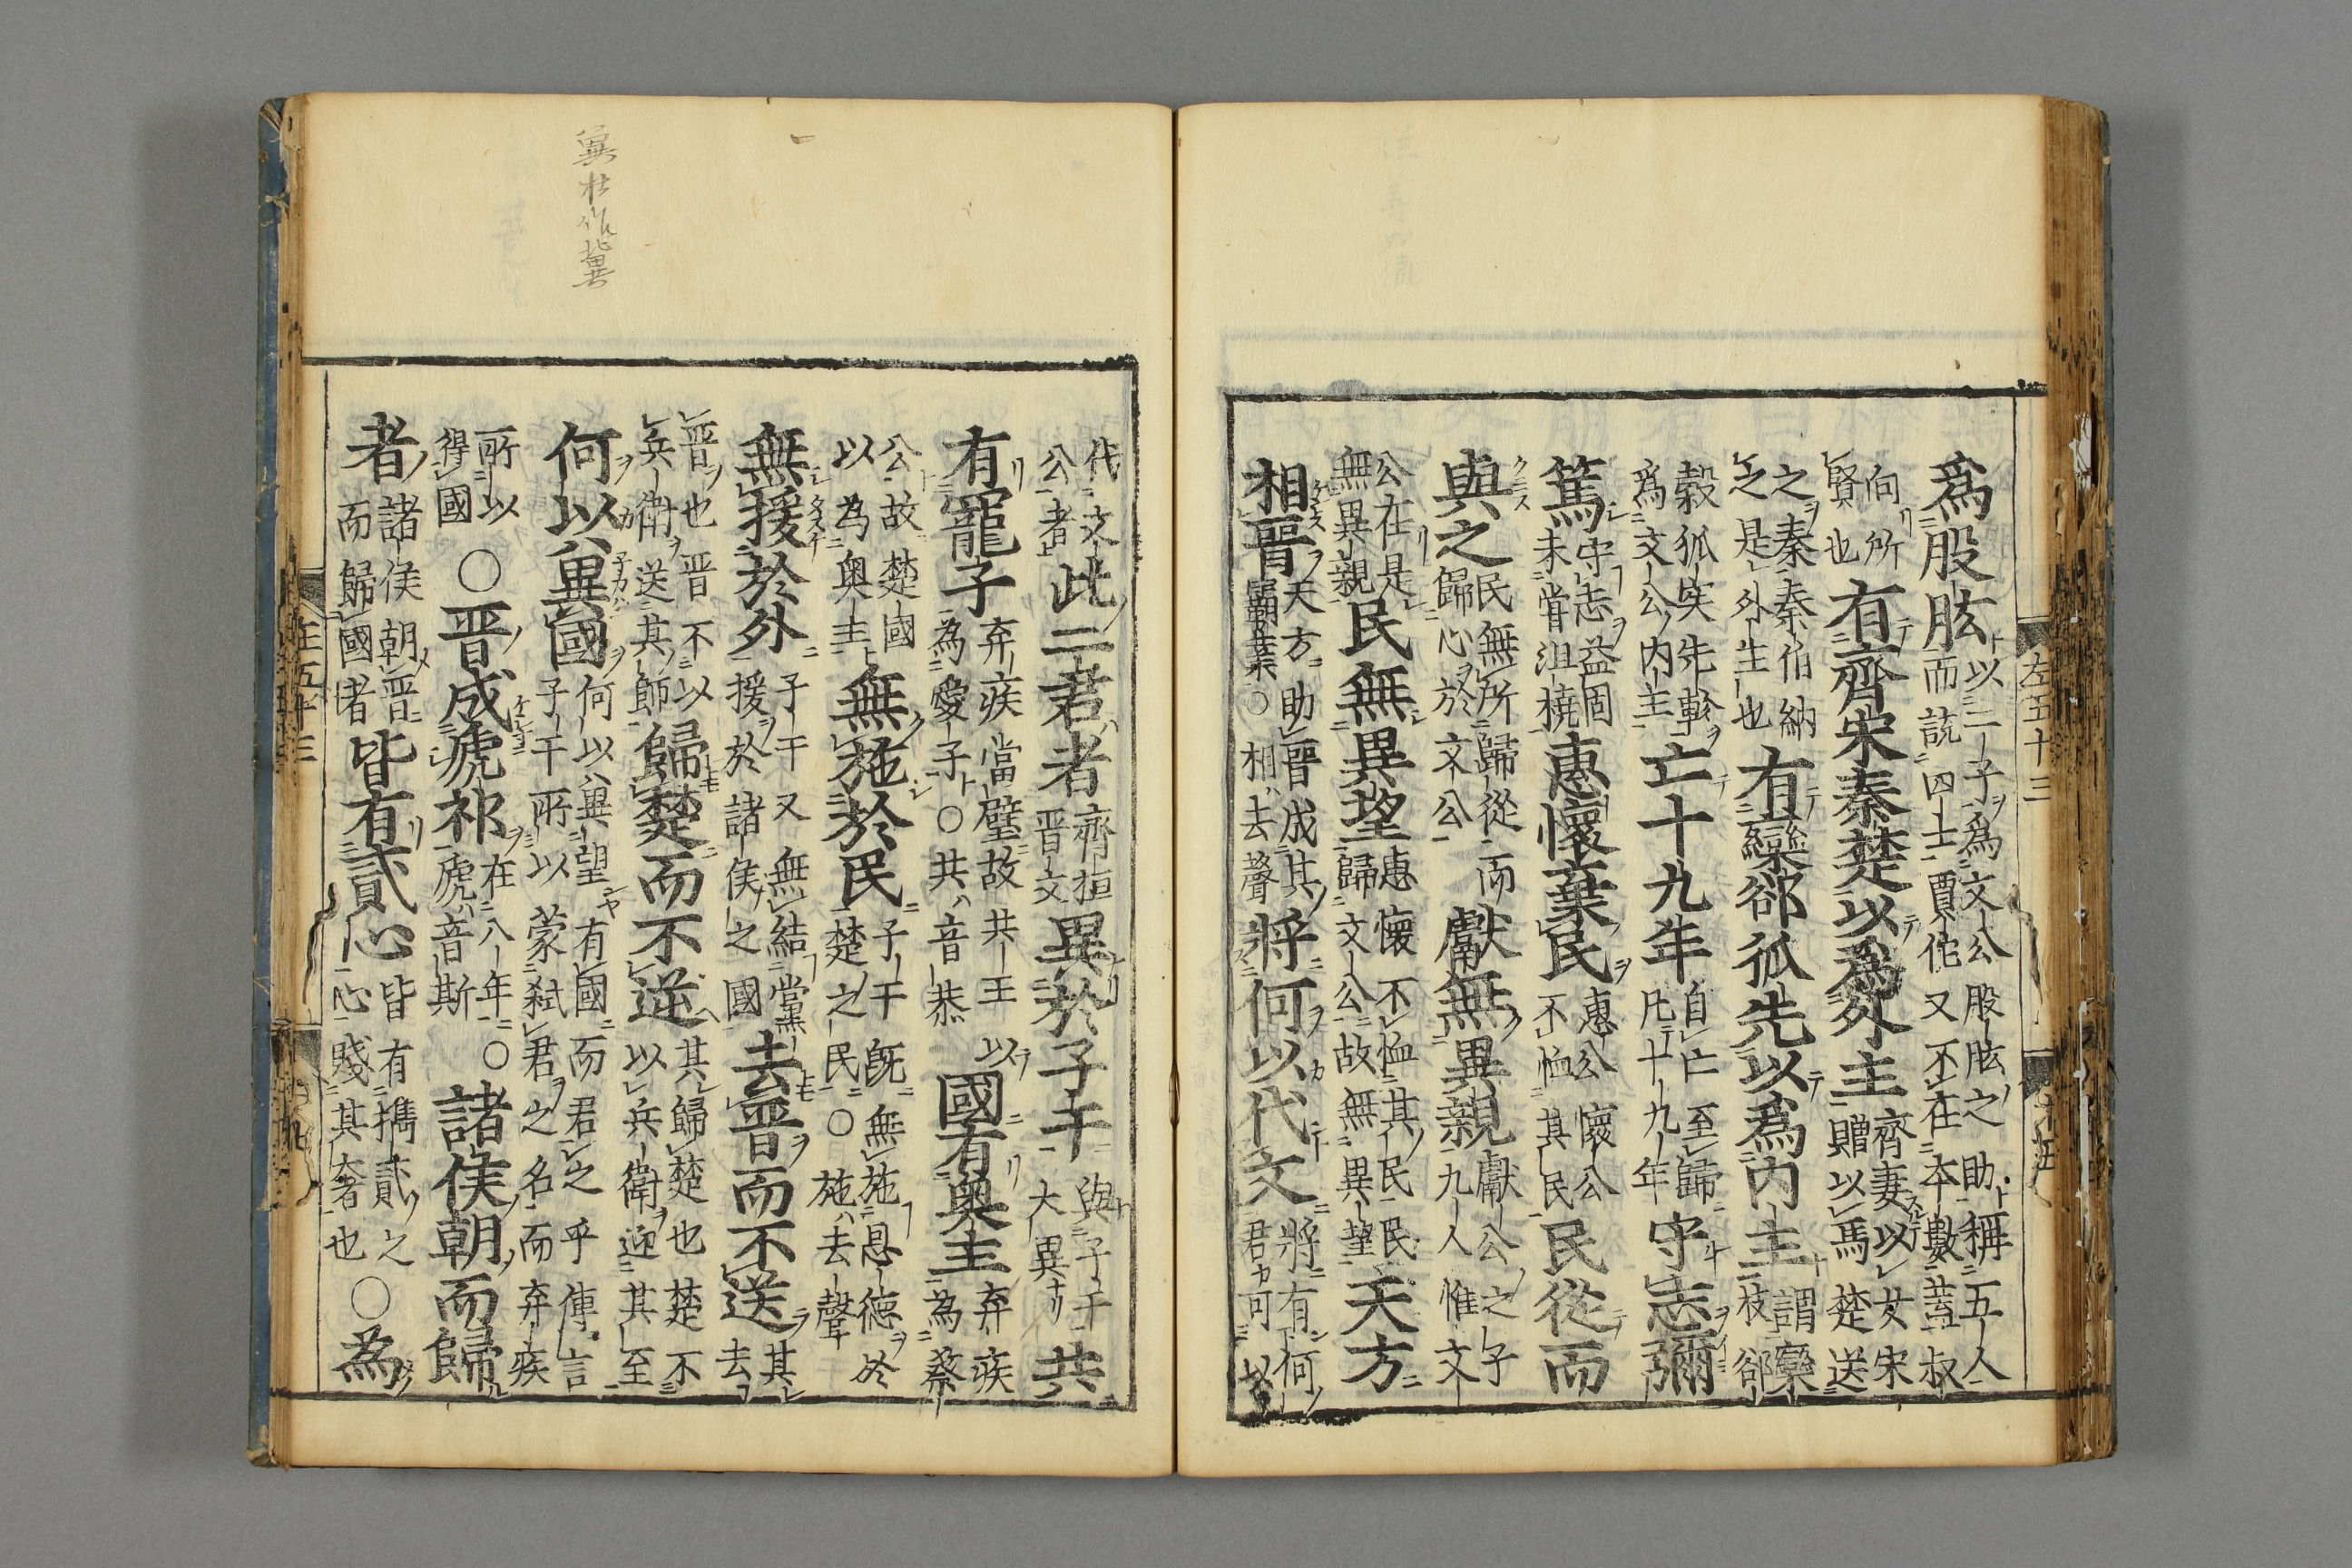 左五十三
爲股肱以二子爲文公股肱之助稱五人而説四士賈佗又不在本數蓋叔
向所賢也有齊宋秦楚以爲外主齊妻以女宋贈以馬楚送
之秦秦伯納之是外生也有欒郤狐先以爲内主謂欒枝郤
縠狐突先軫爲文公内主亡十九年自亡至歸凡十九年守志彌
篤守志益固未嘗沮橈惠懷棄民惠公懷公不恤其民民從而
與之民無所歸從而歸心於文公獻無異親獻公之子九人惟文
公在是無異親民無異望惠懷不恤其民民歸文公故無異望天方
相晉天方助晉成其霸業○相去聲將何以代文將有何君可以
兾杜作冀
代文公者此二君者齊桓晉文異於子干與子干大異共
有寵子弃疾當璧故共王為愛子○共音恭國有奥主弃疾為蔡
公故楚國以為奥主無施於民子干既無施恩德於楚之民○施去聲
無援於外子干又無結黨援於諸侯之國去晉而不送其去
晉也晉不以兵衛送其師歸楚而不逆其歸楚也楚不以兵衛迎其至
何以兾國何以兾望有國而君之乎傳言子干所以蒙弑君之名而弃疾
所以得國○晉成虒祁在八年○虒音斯諸侯朝而歸
者諸侯朝晉而歸國者皆有貳心皆有攜貳之心賤其奢也○為
左五十三